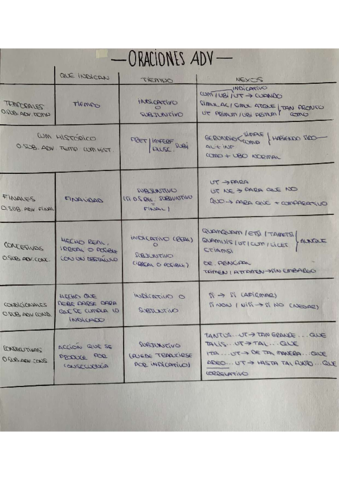 — ORACIONES ADV —
QUE INDICAN
TIEMPO
NEXOS
TEMPORALES
O.SUB.ADV.TEMP
TIEMPO
INDICATIVO
O
SUBJUNTIVO
INDICATIVO
CUM/UBI/UT → CUANDO
SIMUL AC/SIMUL ATQUE / TAN PRONTO
UT PRIMUM/UBI PRIMUM COMO
CUM HISTÓRICO
O.SUB.ADV TEMP CUM HIST
SUBJ
GERUNDIO
+ INF
COMO + VERBO NORMAL
FINALES
O.SUB.ADV.FINAL
FINALIDAD
SUBJUNTIVO
FINAL)
UT → PARA
UT NE → PARA QUE NO
QUO → PARA QUE + COMPARATIVO
CONCESIVAS
O.SUB.ADV.CONC.
HECHO REAL,
IRREAL O POSIBLE
CON UN OBSTÁCULO
INDICATIVO (REAL) O
SUBJUNTIVO
(IRREAL O POSIBLE)
QUAMQUAM/ETSI/TAMETSI
QUAMVIS/UT/CUM/LICET
ETIAMSI
AUNQUE
OR. PRINCIPAL
TAMEN/ATTAMEN → SIN EMBARGO
CONDICIONALES
O.SUB.ADV.COND
HECHO QUE
DEBE DARSE PARA
QUE SE CUMPLA LO
INDICADO
INDICATIVO O
SUBJUNTIVO
SI → SI (AFIRMAR)
SI NON / NISI → SI NO (NEGAR)
CONSECUTIVAS
O.SUB.ADV.CONS
ACCIÓN QUE SE
PRODUCE POR
CONSECUENCIA
SUBJUNTIVO
(PUEDE TRADUCIRSE
POR INDICATIVO)
TANTUS...UT → TAN GRANDE... QUE
TALIS...UT → TAL... QUE
ITA...UT → DE TAL MANERA... QUE
ADEO...UT → HASTA TAL PUNTO...QUE
CORRELATIVO